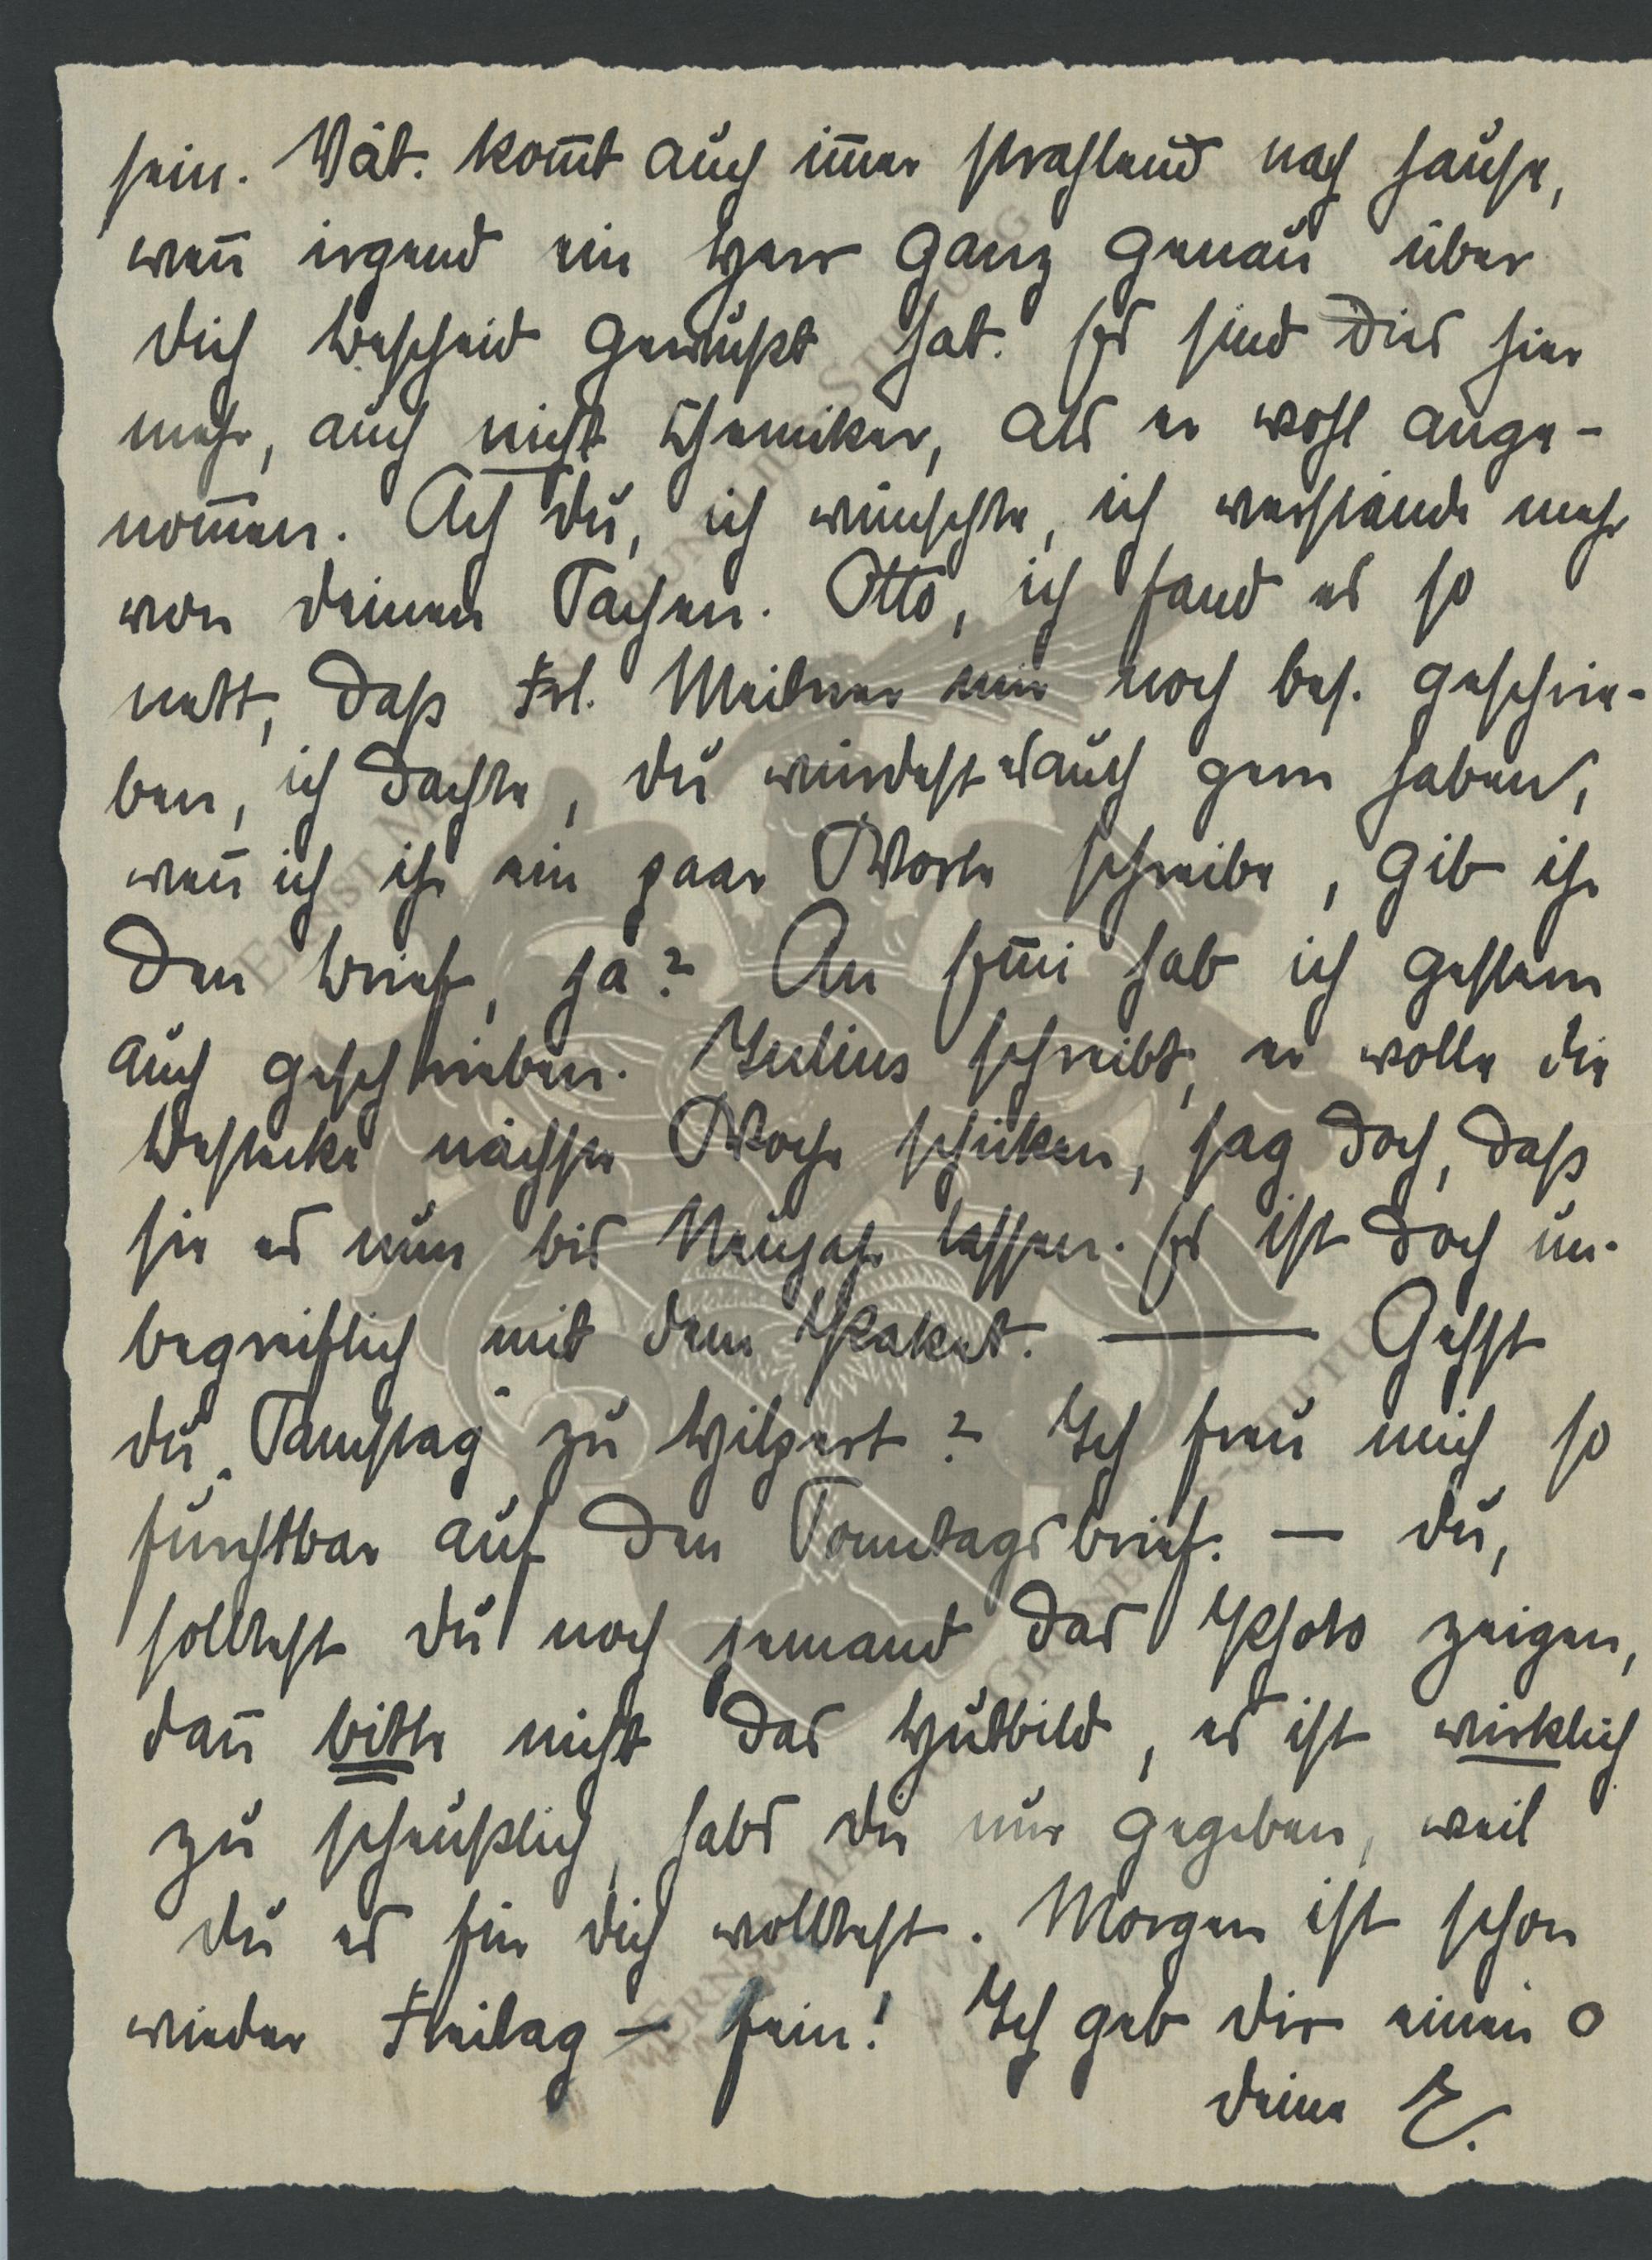 sein. Vat. kom̄t auch im̄er strahlend nach hause,
wen̄ irgend ein Herr ganz genau über
dich Bescheid gewußt hat. Es sind dies hier
mehr, auch nicht Chemiker, als er wohl ange-
nom̄en. Ach du, ich wünschte, ich verstände mehr
von deinen Sachen. Otto, ich fand es so
nett, daß Frl. Meitner mir noch bes. geschrie-
ben, ich dachte, du würdest es auch gern haben,
wen̄ ich ihr ein paar Worte schreibe, gib ihr
den Brief, ja? An Em̄i hab ich gestern
auch geschrieben. Julius schreibt, er wolle die
Bestecke nächste Woche schicken, sag doch, daß
sie es nun bis Neujahr lassen. Es ist doch un-
begreiflich mit dem Packet. — Gehst
du „Samstag" zu Hilpert? Ich freu mich so
furchtbar auf den Sonntagsbrief. — du,
solltest du noch jemand das Photo zeigen,
dan̄ bitte nicht das Hutbild, es ist wirklich
zu scheußlich, habs dir nur gegeben, weil
du es für dich wolltest. Morgen ist schon
wieder Freitag – fein! Ich geb dir einen o
deine E.
ERNST MAX VON GRUNELIUS-STIFTUNG
ERNST MAX VON GRUNELIUS-STIFTUNG